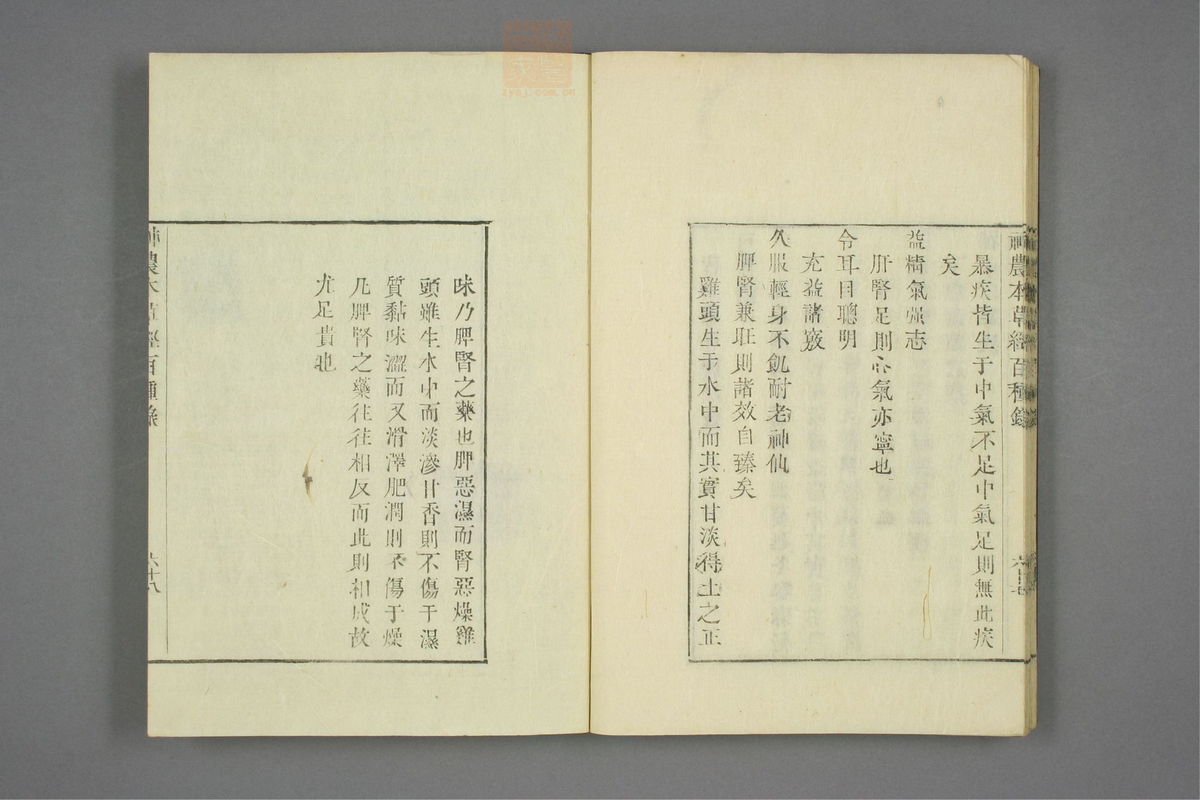 神農本草經百種錄
六十七
暴疾皆生于中氣不足中氣足則無此疾
矣
益精氣强志
肝腎足則心氣亦寧也
令耳目聰明
充益諸竅
久服輕身不飢耐老神仙
脾腎兼旺則諸效自臻矣
雞頭生于水中而其實甘淡得土之正
味乃脾腎之藥也脾惡濕而腎惡燥雞
頭雖生水中而淡滲甘香則不傷于濕
質黏味澀而又滑澤肥潤則不傷于燥
凡脾腎之藥往往相反而此則相成故
尤足貴也
神農本草經百種錄
六十八
zysj.com.cn